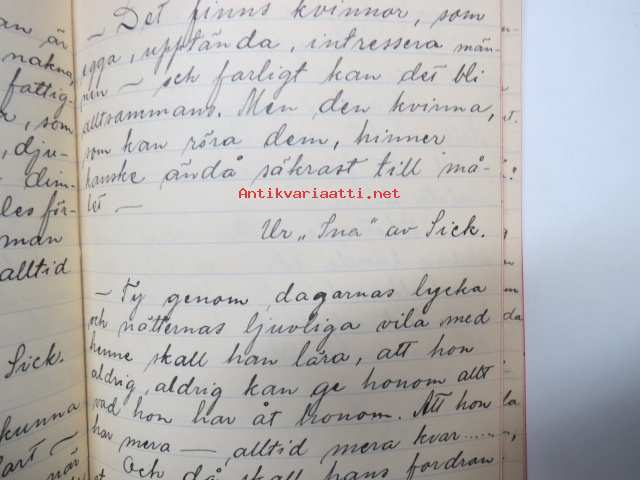 an är
nakna,
fattig-
, som
, dju-
dim-
les för-
man
alltid
Sick.
kunna
art —
när
— Det finns kvinnor, som
egga, upptända, intressera män-
nen — och farligt kan det bli
alltsammans. Men den kvinna,
som kan röra dem, hinner
kanske ändå säkrast till må-
let —
Antikvariaatti.net
Ur „Ina" av Sick.
— Ty genom dagarnas lycka
och nätternas ljuvliga vila med
henne skall han lära, att hon
aldrig, aldrig kan ge honom allt
vad hon har åt honom. Att hon
har mera — alltid mera kvar.......
Och då skall hans fordran